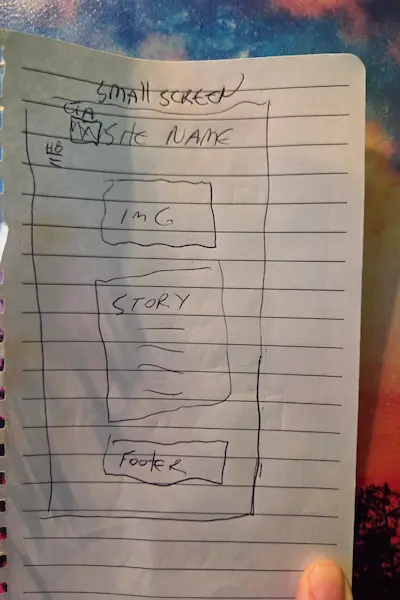 SMALL SCREEN
CTA
SITE NAME
HB
IMG
STORY
FOOTER